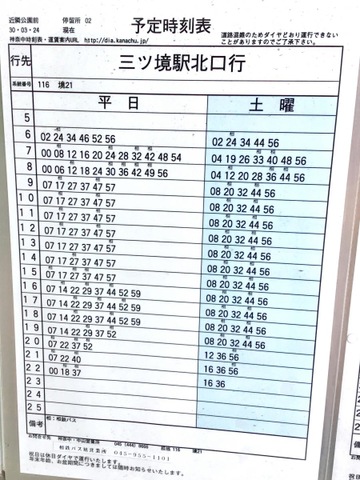 近隣公園前 停留所 02
30・03・24 現在
神奈中時刻表・運賃案内URL http://dia.kanachu.jp/
予定時刻表
道路混雑のためダイヤどおり運行できない
ことがありますのでご了承下さい。
行先 三ツ境駅北口行
系統番号 116 境21
平日 土曜
5
6 02 24 34 46 52 56 02 24 34 44 56
7 00 08 12 16 20 24 28 32 42 48 54 04 19 26 33 40 48 56
8 00 06 12 18 24 30 36 42 49 56 04 12 20 28 36 44 56
9 07 17 27 37 47 57 08 20 32 44 56
10 07 17 27 37 47 57 08 20 32 44 56
11 07 17 27 37 47 57 08 20 32 44 56
12 07 17 27 37 47 57 08 20 32 44 56
13 07 17 27 37 47 57 08 20 32 44 56
14 07 17 27 37 47 57 08 20 32 44 56
15 07 17 27 37 47 57 08 20 32 44 56
16 07 14 22 29 37 44 52 59 08 20 32 44 56
17 07 14 22 29 37 44 52 59 08 20 32 44 56
18 07 14 22 29 37 44 52 59 08 20 32 44 56
19 07 14 22 29 37 52 08 20 32 44 56
20 07 22 37 52 08 20 32 44 56
21 07 22 40 12 36 56
22 00 18 37 16 36 56
23 16 36
24
25
備考 相:相鉄バス
お問合せ先
045-955-1101
祝日は休日ダイヤで運行いたします。
年末年始、お盆期間につきましては随時お知らせいたします。